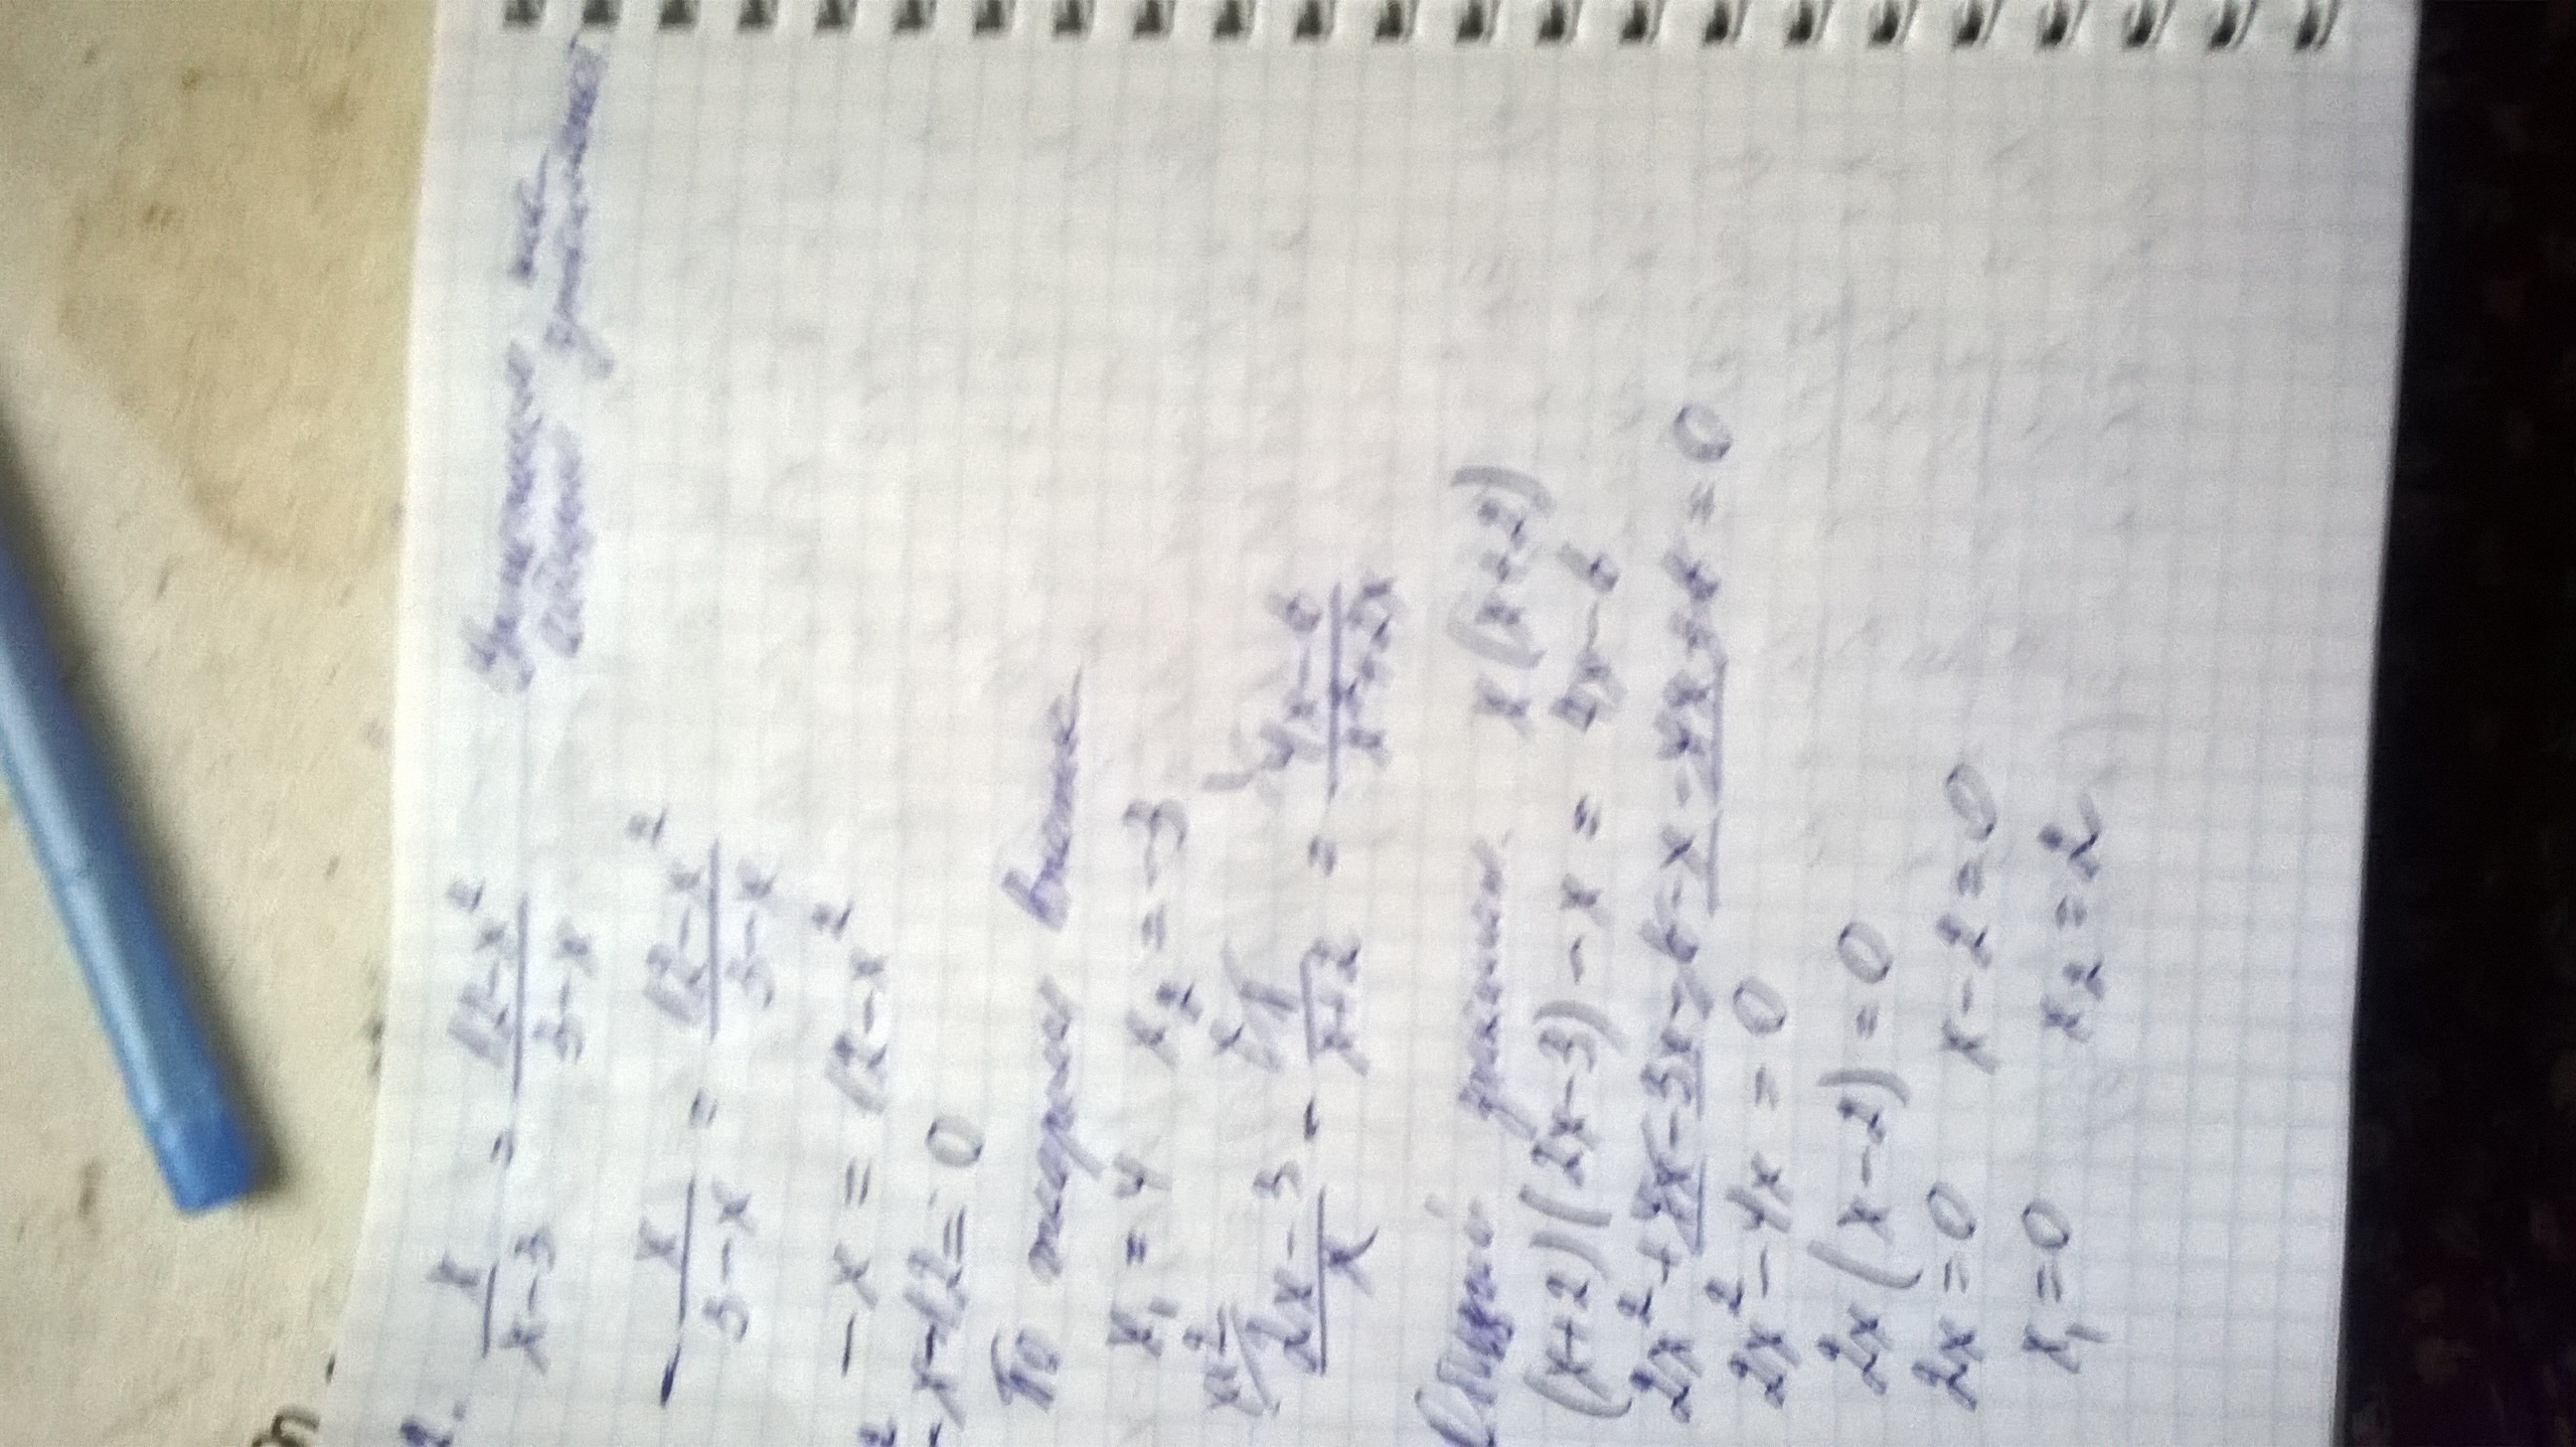 1. x/(x-3) = (12-x²)/(3-x)
-x/(3-x) = (12-x²)/(3-x)
-x = 12-x²
x²-x-12=0
По теореме Виета
x₁=4 x₂=-3
(2x-3)/x - 1/(x+2) = (4x-6)/(x²+2x)
Общий x(x+2)
(x+2)(2x-3)-x = 4x-6
2x²+4x-3x-6-x-4x+6=0
2x²-4x=0
2x(x-2)=0
2x=0 x-2=0
x₁=0 x₂=2